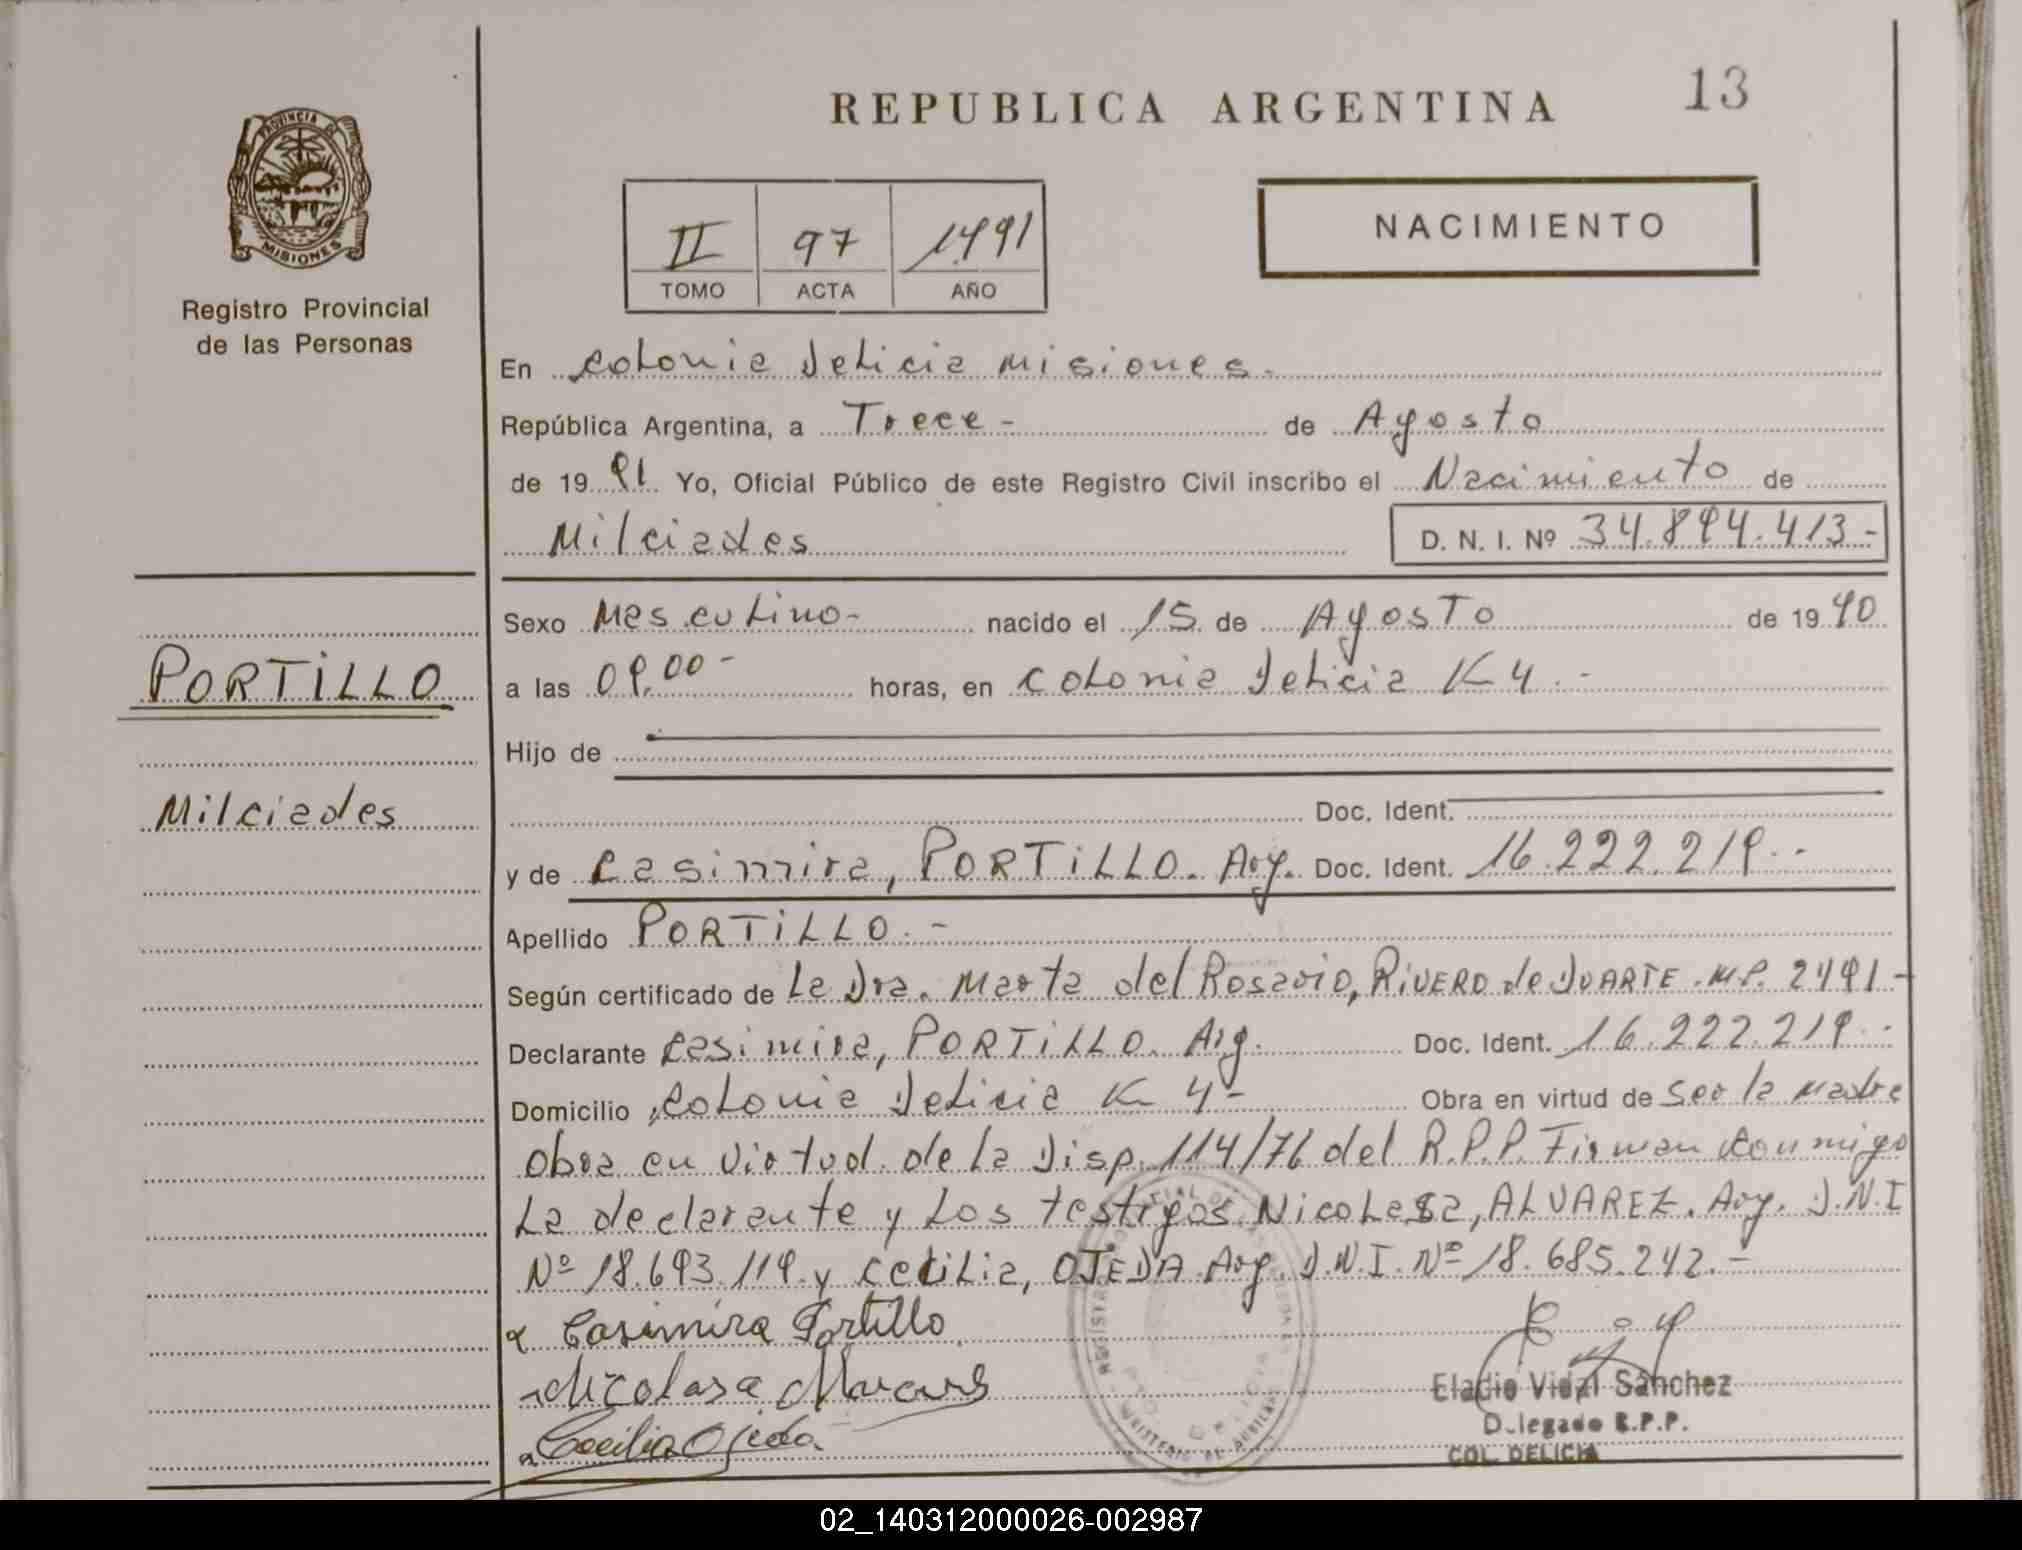 REPUBLICA ARGENTINA
13
PROVINCIA DE
MISIONES
Registro Provincial
de las Personas
II 97 1991
TOMO ACTA AÑO
NACIMIENTO
En Colonia Delicia Misiones.
República Argentina, a Trece - de Agosto
de 19 91. Yo, Oficial Público de este Registro Civil inscribo el Nacimiento de
Milciades D. N. I. Nº 34.894.413-
PORTILLO
Milciades
Sexo Masculino- nacido el 15 de Agosto de 19 90
a las 09,00- horas, en Colonia Delicia K 4.-
Hijo de
Doc. Ident.
y de Casimira, PORTILLO. Arg. Doc. Ident. 16.222.219.-
Apellido PORTILLO.-
Según certificado de La Dra. Marta del Rosario, RIVERO de DUARTE. M.P. 2491-
Declarante Casimira, PORTILLO. Arg. Doc. Ident. 16.222.219.-
Domicilio Colonia Delicia K 4- Obra en virtud de Ser la Madre
Obra en virtud de la Disp. 114/76 del R.P.P. Firman Conmigo
La declarante y Los testigos Nicolasa, ALVAREZ. Arg. D.N.I
Nº 18.693.119 y Cecilia, OJEDA. Arg. D.N.I. Nº 18.685.242.-
Casimira Portillo
Nicolasa
Cecilia Ojeda
Eladio Vidal Sánchez
Delegado R.P.P.
COL. DELICIA
02_140312000026-002987